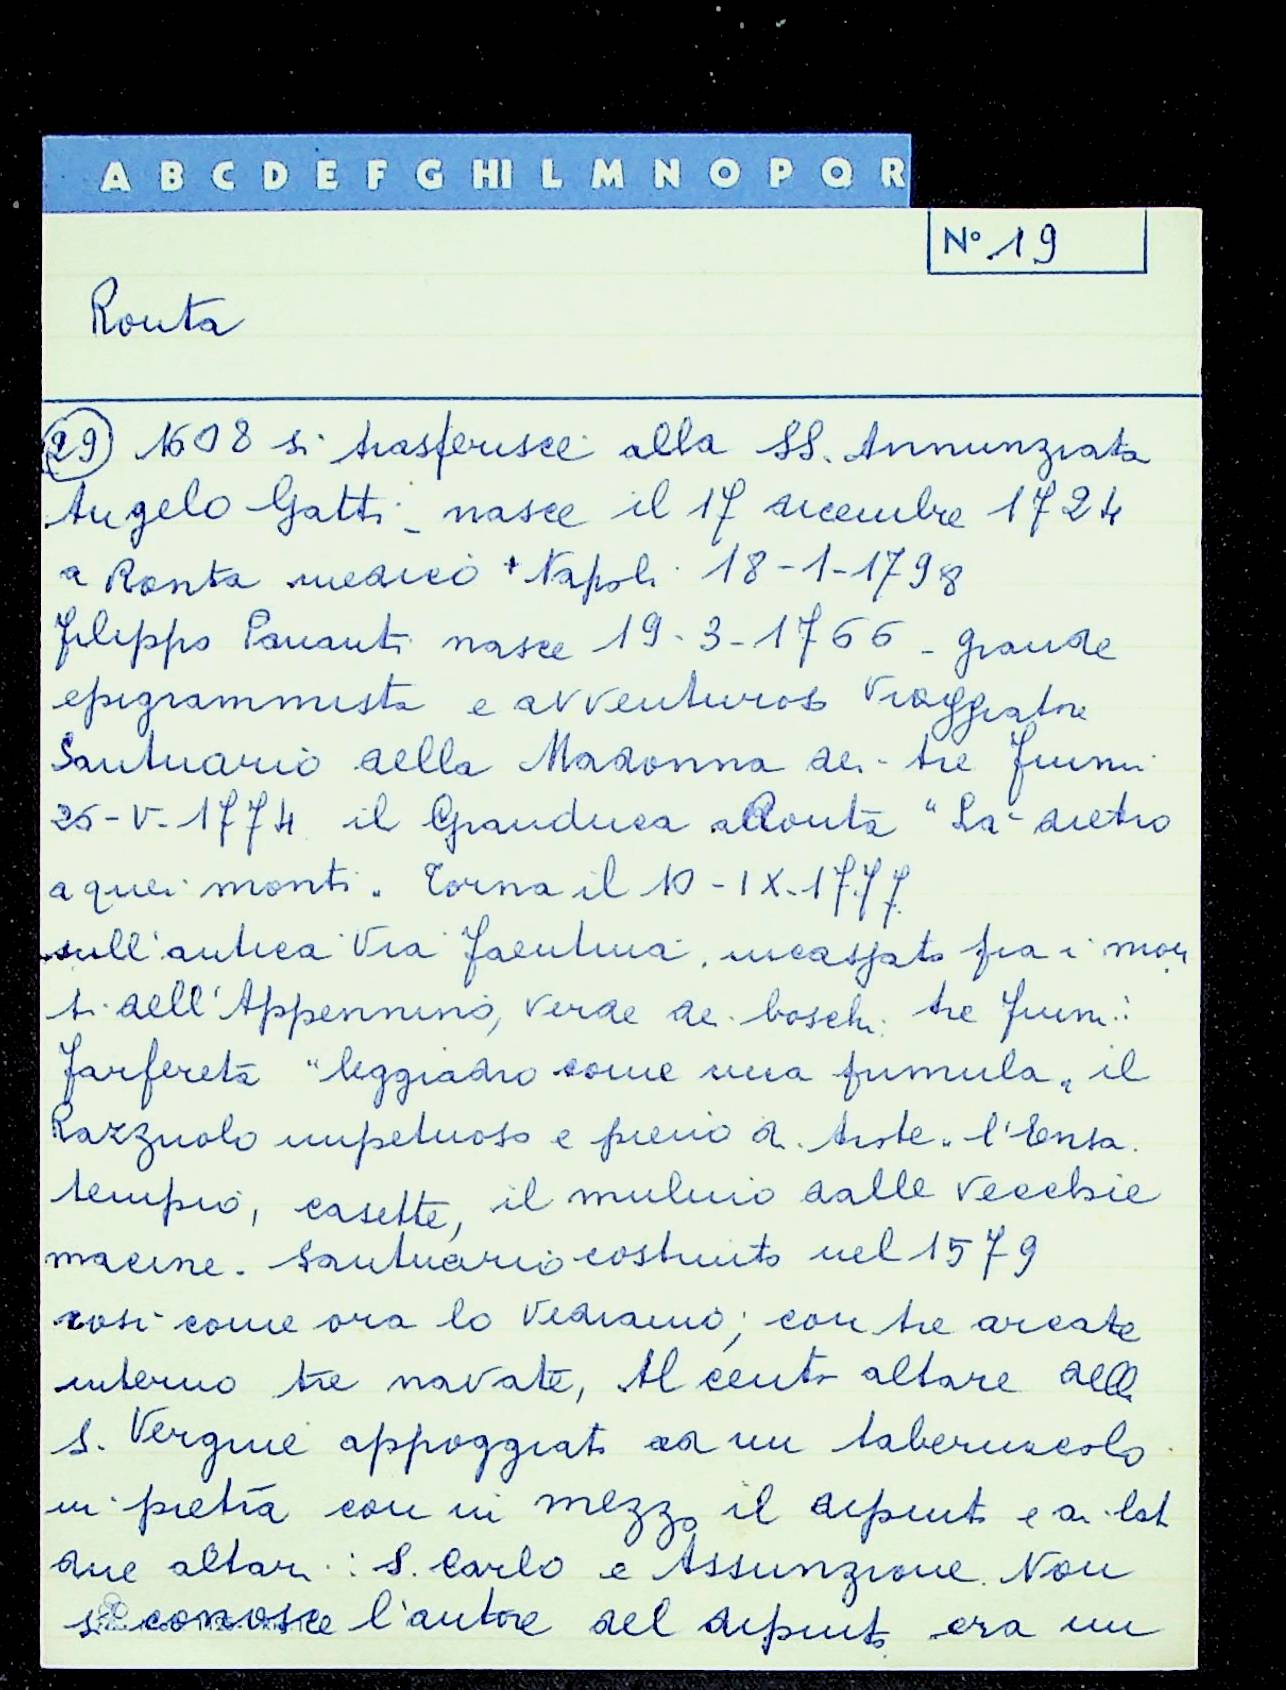 A B C D E F G HI L M N O P Q R
N° 19
Ronta
29 1608 si trasferisce alla SS. Annunziata
Angelo Gatti - nasce il 17 dicembre 1724
a Ronta medico + Napoli 18-1-1798
Filippo Pananti nasce 19-3-1766 - grande
epigrammista e avventuroso viaggiatore
Santuario della Madonna dei tre fiumi
25-V-1774 il Granduca a Ronta "La dietro
a quei monti". Torna il 10-IX-1777
sull'antica Via Faentina, incassato fra i mon
ti dell'Appennino, verde dei boschi tre fiumi:
Farfereta "leggiadro come una fumula" il
Razzuolo impetuoso e pieno di trote. l'Ensa.
tempio, casette, il mulino dalle vecchie
macine. Santuario costruito nel 1579
così come ora lo vediamo; con tre arcate
interno tre navate, Al cento altare della
S. Vergine appoggiato ad un tabernacolo
in pietra con in mezzo il dipinto e ai lati
due altari: S. Carlo e Assunzione. Non
si conosce l'autore del dipinto era un